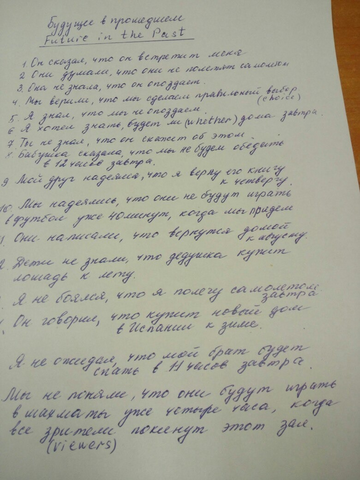 Будущее в прошедшем
Future in the Past
1. Он сказал, что он встретит меня
2. Они думали, что они не полетят самолетом
3. Она не знала, что он опоздает.
4. Мы верили, что мы сделаем правильный выбор
(choice)
5. Я знал, что мы не опоздаем.
6. Я хотел знать, будет ли (whether) дома завтра
7. Ты не знал, что он скажет об этом.
Бабушка сказала, что мы не будем обедать
в 12 часов завтра.
9. Мой друг надеялся, что я верну его книгу
к четвергу.
10. Мы надеялись, что они не будут играть
в футбол уже 40 минут, когда мы придем
Они написали, что вернутся домой
к августу
Дети не знали, что дедушка купит
лошадь к лету.
Я не боялся, что я полечу самолетом
завтра
Он говорил, что купит новый дом
в Испании к зиме.
Я не ожидал, что мой брат будет
спать в 11 часов завтра.
Мы не поняли, что они будут играть
в шахматы уже четыре часа, когда
все зрители покинут этот зал.
(viewers)